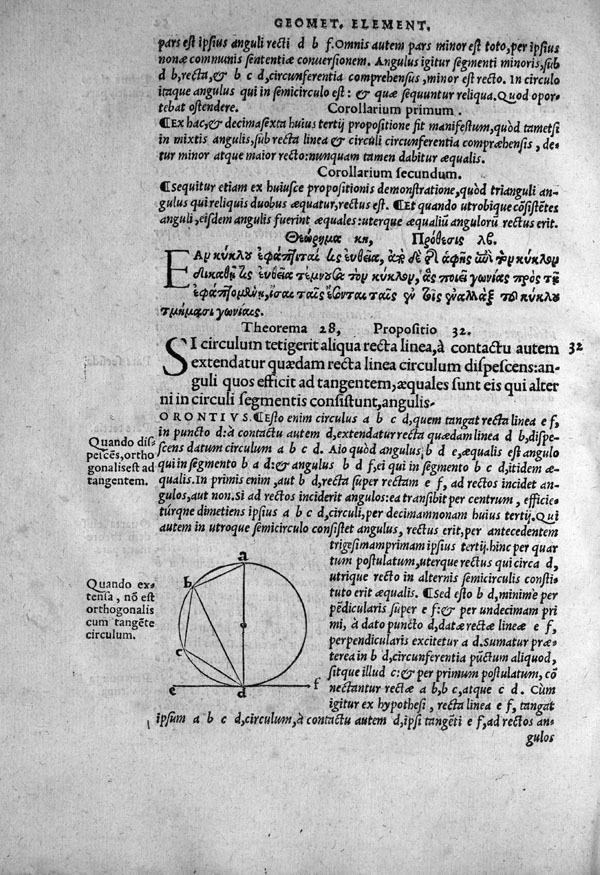 GEOMET. ELEMENT.
pars est ipsius anguli recti d b f. Omnis autem pars minor est toto, per ipsius
nonæ communis sententiæ conuersionem. Angulus igitur segmenti minoris, sub
d b, recta, & b c d, circunferentia comprehensus, minor est recto. In circulo
itaque angulus qui in semicirculo est: & quæ sequuntur reliqua. Quod opor-
tebat ostendere. Corollarium primum.
¶Ex hac, & decimasexta huius tertij propositione fit manifestum, quòd tametsi
in mixtis angulis, sub recta linea & circuli circunferentia compræhensis, de-
tur minor atque maior recto: nunquam tamen dabitur æqualis.
Corollarium secundum.
¶Sequitur etiam ex huiusce propositionis demonstratione, quòd trianguli an-
gulus qui reliquis duobus æquatur, rectus est. ¶Et quando utrobique cõsistētes
anguli, eisdem angulis fuerint æquales: uterque æqualiũ angulorũ rectus erit.
Θεώρημα κη, Πρόθεσις λβ.
Ἐὰν κύκλου ἐφάπτηταί τις εὐθεῖα, ἀπὸ δὲ τῆς ἁφῆς ἐπὶ τὸν κύκλον
διαχθῇ τις εὐθεῖα τέμνουσα τὸν κύκλον, ἃς ποιεῖ γωνίας πρὸς τῇ
ἐφαπτομένῃ, ἴσαι ταῖς ἔσονται ταῖς ἐν τοῖς ἐναλλὰξ τοῦ κύκλου
τμήμασι γωνίαις.
Theorema 28, Propositio 32.
SI circulum tetigerit aliqua recta linea, à contactu autem 32
extendatur quædam recta linea circulum dispescens: an-
guli quos efficit ad tangentem, æquales sunt eis qui alter
ni in circuli segmentis consistunt, angulis.
ORONTIVS. ¶Esto enim circulus a b c d, quem tangat recta linea e f,
in puncto d: à contactu autem d, extendatur recta quædam linea d b, dispe-
scens datum circulum a b c d. Aio quòd angulus, b d e, æqualis est angulo
qui in segmento b a d: & angulus b d f, ei qui in segmento b c d, itidem æ-
qualis. In primis enim, aut b d, recta super rectam e f, ad rectos incidet an-
gulos, aut non. Si ad rectos inciderit angulos: ea transibit per centrum, efficie-
turque dimetiens ipsius a b c d, circuli, per decimamnonam huius tertij. Qui
autem in utroque semicirculo consistet angulus, rectus erit, per antecedentem
trigesimamprimam ipsius tertij. hinc per quar
tum postulatum, uterque rectus qui circa d,
utrique recto in alternis semicirculis consti-
tuto erit æqualis. ¶Sed esto b d, minime per
pēdicularis super e f: & per undecimam pri
mi, à dato puncto d, datæ rectæ lineæ e f,
perpendicularis excitetur a d. Sumatur præ-
terea in b d, circunferentia pũctum aliquod,
sitque illud c: & per primum postulatum, cõ
nectantur rectæ a b, b c, atque c d. Cùm
igitur ex hypothesi, recta linea e f, tangat
ipsum a b c d, circulum, à contactu autem d, ipsi tangēti e f, ad rectos an-
gulos
Quando dis
pescēs, ortho
gonalis est ad
tangentem.
Quando ex-
tensa, nõ est
orthogonalis
cum tangēte
circulum.
a
b
c
e d f